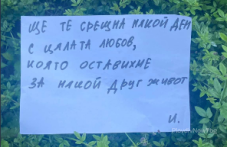 ще те срещна някой ден
с цялата любов,
която оставихме
за някой друг живот
И.